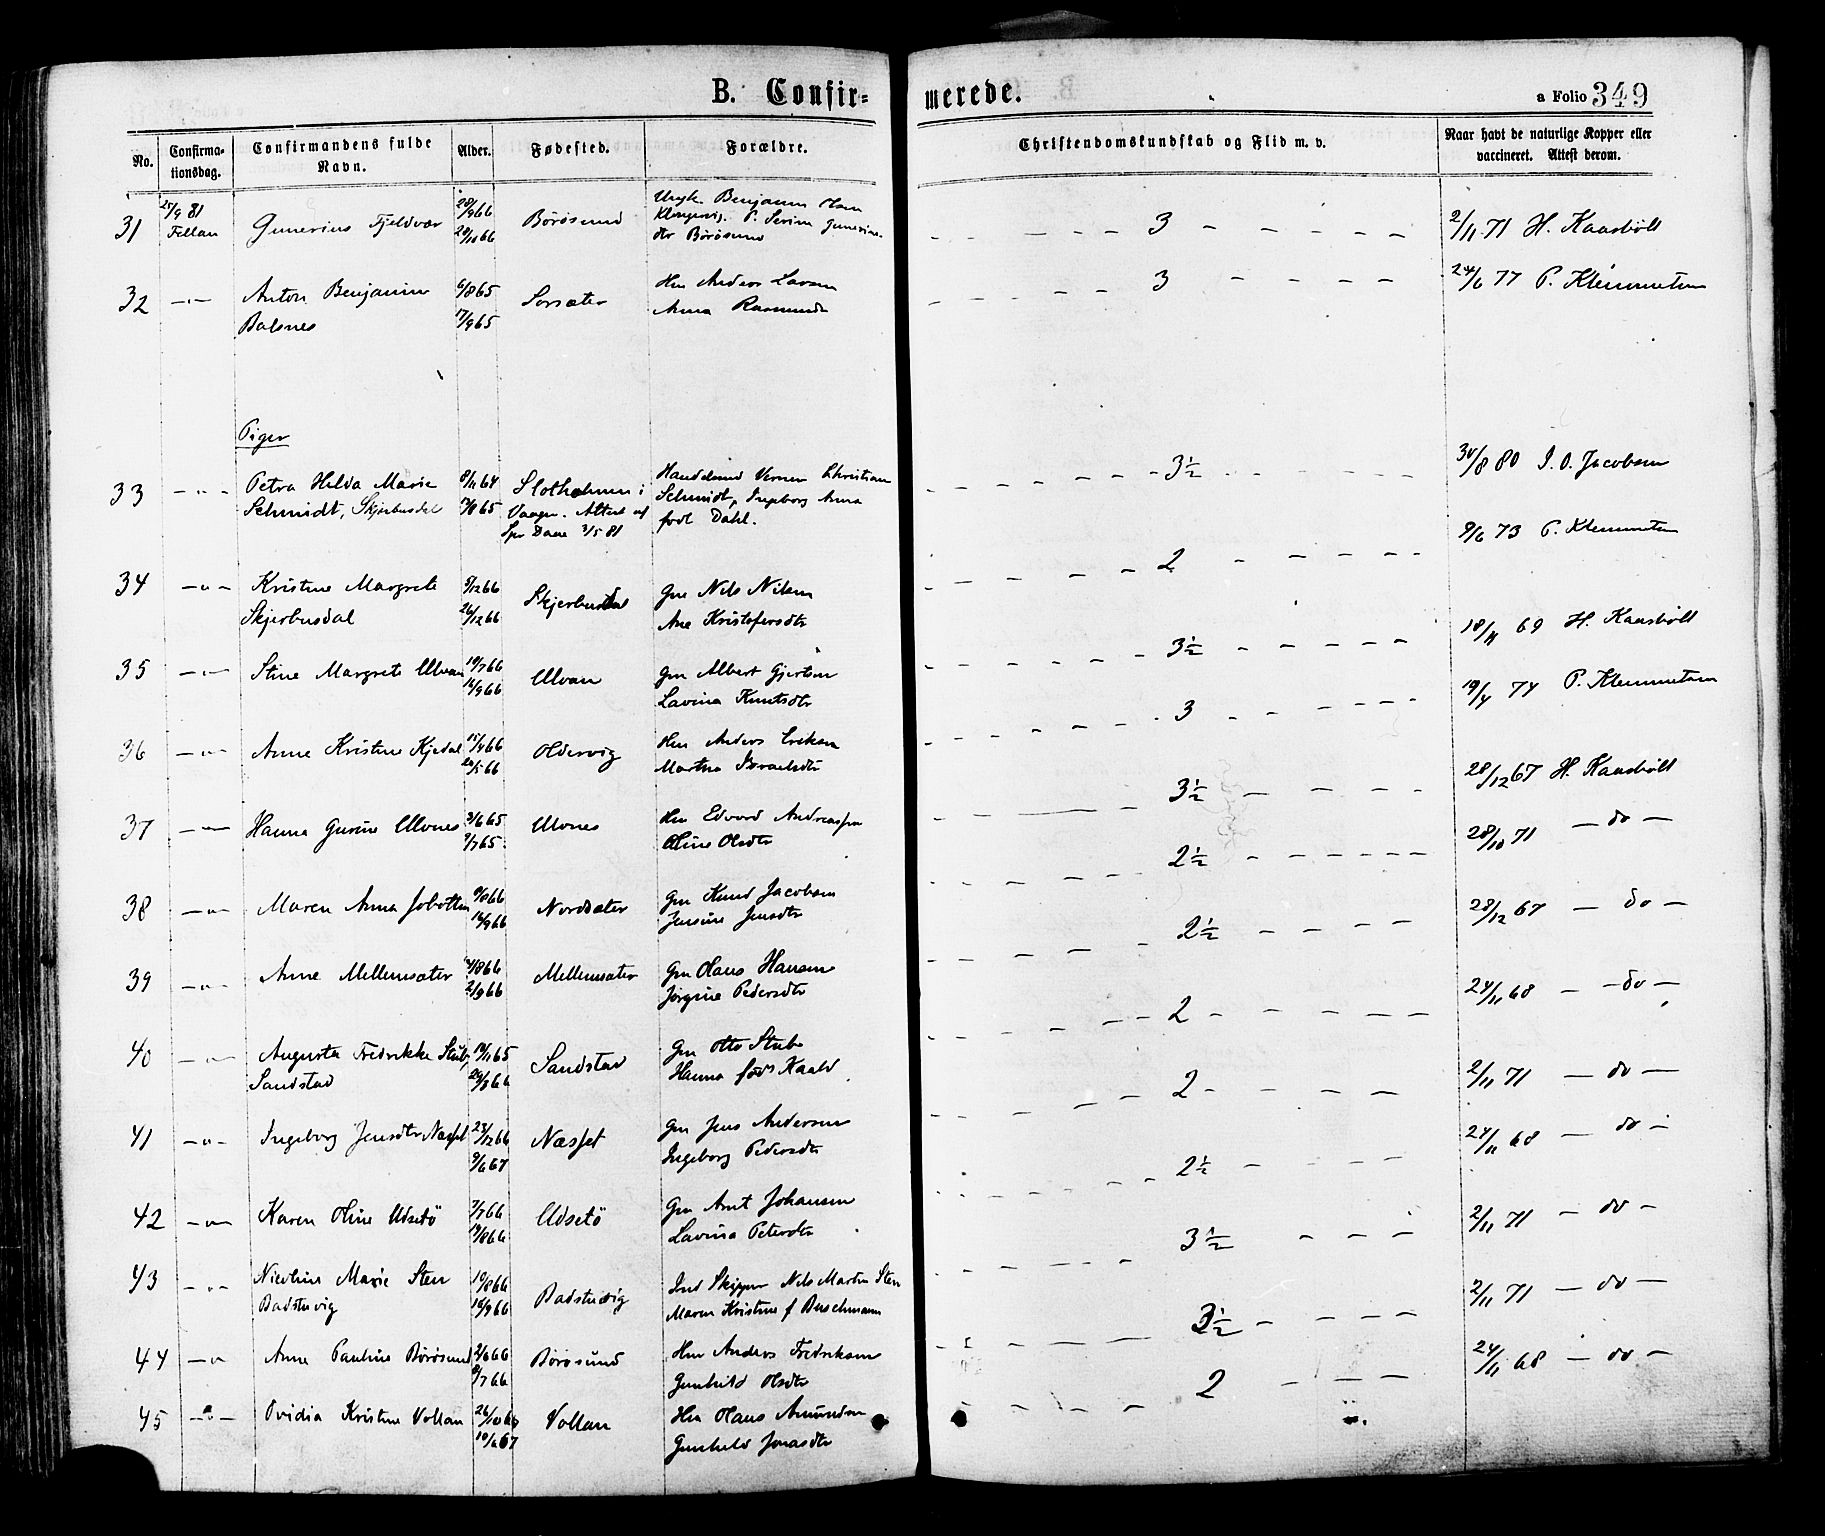 B. Confir-
merede.
a Folio 349
No.
Confirma-
tionsdag.
Confirmandens fulde
Navn.
Alder.
Fødested.
Forældre.
Christendomskundskab og Flid m. v.
Naar havt de naturlige Kopper eller
vaccineret. Attest derom.
31 25/9 81 Gunerius Fjeldvær 28/9 66 Børøsund Benjamin Olsen
Fillan 28/10 66 P. Serine
dtr Børøsund
3 2/11 71 H. Kaasbøll
32 -"- Anton Benjamin 6/8 65 Sorsæter Hm Anders
Balsnes 17/9 65 Anna Rasmusdtr
3 24/6 77 P. Klemmetsen
Piger
33 -"- Petra Hilda Marie 8/11 64 Slotholmen i Verner Christian
Schmidt, Skjerbusdal 65 Vaagen. Attest af Schmidt, Ingeborg Anna
3/5 81 født Dahl.
3½ 30/8 80 J. O. Jacobsen
34 -"- Kristine Margrete 5/12 66 Skjerbusdal Gm Nils Nilsen
Skjerbusdal 26/12 66 Ane Kristofersdtr
2 9/6 73 P. Klemmetsen
35 -"- Stine Margrete Ulvan 19/7 66 Ulvan Gm Albert Gjertsen
16/9 66 Lavina Knutsdtr
3½ 18/11 69 H. Kaasbøll
36 -"- Anne Kristine Kjødal 15/4 66 Oldervig Hm Anders Eriksen
20/5 66 Martha Israelsdtr
3 19/4 74 P. Klemmetsen
37 -"- Hanna Gurine Ulvnes 3/6 65 Ulvnes Hm Edvard Andreassen
9/7 65 Oline Olsdtr
3½ 28/12 67 H. Kaasbøll
38 -"- Maren Anna 9/8 66 Nordsæter Gm Knud Jacobsen
16/9 66 Jensine Jensdtr
2½ 28/10 71 - do -
39 -"- Anne Mellemsæter 14/8 66 Mellemsæter Gm Hans Hansen
2/9 66 Jørgine Pedersdtr
2½ 28/12 67 - do -
40 -"- Augusta Fredrikke Stub, 19/11 65 Sandstad Gm Otto Stub
Sandstad 66 Hanna født Kaald
2 24/11 68 - do -
41 -"- Ingeborg Jensdtr Næsset 23/12 66 Næsset Gm Jens Andersen
9/6 67 Ingeborg Pedersdtr
2 2/11 71 - do -
42 -"- Karen Oline Udsetø 7/7 66 Udsetø Gm Arnt Johansen
19/8 66 Lavina Petersdtr
2½ 24/11 68 - do -
43 -"- Nicoline Marie Sten 19/8 66 Badstuvig Ind Skipper Nils Martin Sten
Badstuvig 16/9 66 Maren Kristine f Buschmann
3½ 2/11 71 - do -
44 -"- Anne Pauline Børøsund 2/6 66 Børøsund Hm Anders Fredriksen
8/7 66 Gunhild Olsdtr
3½ 2/11 71 - do -
45 -"- Ovidia Kristine Vollan 26/10 66 Vollan Hm Hans Amundsen
10/6 67 Gunhild Jonasdtr
2 24/11 68 - do -